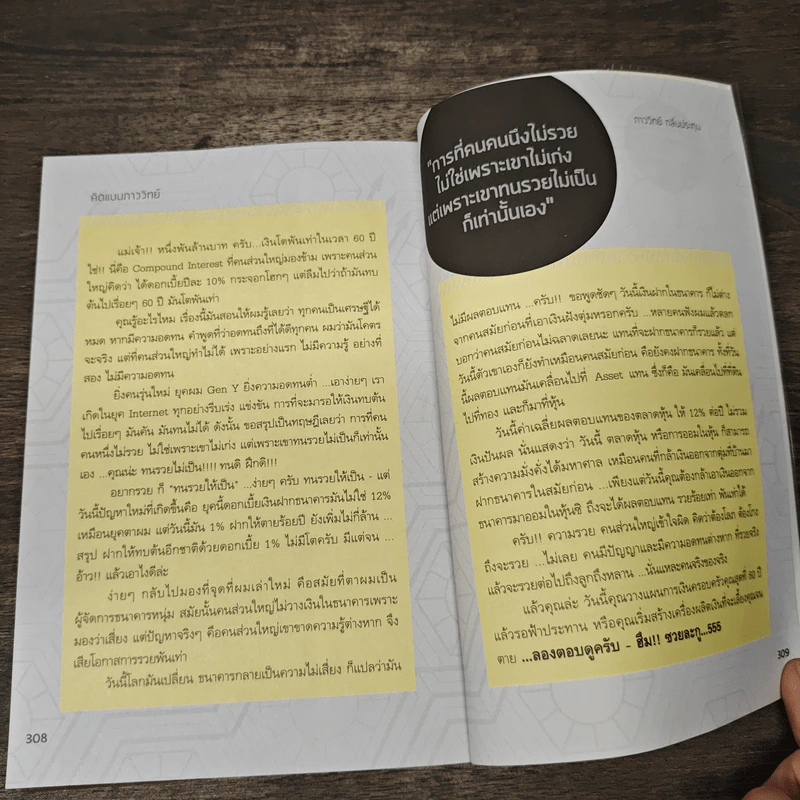 คิดแบบภาววิทย์
แม่เจ้า!! หนึ่งพันล้านบาท ครับ...เงินโตพันเท่าในเวลา 60 ปี
ใช่!! นี่คือ Compound Interest ที่คนส่วนใหญ่มองข้าม เพราะคนส่วน
ใหญ่คิดว่า ได้ดอกเบี้ยปีละ 10% กระจอกโฮกๆ แต่ลืมไปว่าถ้ามันทบ
ต้นไปเรื่อยๆ 60 ปี มันโตพันเท่า
คุณรู้อะไรไหม เรื่องนี้มันสอนให้ผมรู้เลยว่า ทุกคนเป็นเศรษฐีได้
หมด หากมีความอดทน คำพูดที่ว่าอดทนถึงที่ได้ดีทุกคน ผมว่ามันโคตร
จะจริง แต่ที่คนส่วนใหญ่ทำไม่ได้ เพราะอย่างแรก ไม่มีความรู้ อย่างที่
สอง ไม่มีความอดทน
ยิ่งคนรุ่นใหม่ ยุคผม Gen Y ยิ่งความอดทนต่ำ ...เอาง่ายๆ เรา
เกิดในยุค Internet ทุกอย่างรีบเร่ง แข่งขัน การที่จะมารอให้เงินทบต้น
ไปเรื่อยๆ มันคัน มันทนไม่ได้ ดังนั้น ขอสรุปเป็นทฤษฎีเลยว่า การที่คน
คนหนึ่งไม่รวย ไม่ใช่เพราะเขาไม่เก่ง แต่เพราะเขาทนรวยไม่เป็นก็เท่านั้น
เอง ...คุณน่ะ ทนรวยไม่เป็น!!!! ทนดิ ฝึกดิ!!!
อยากรวย ก็ "ทนรวยให้เป็น" ...ง่ายๆ ครับ ทนรวยให้เป็น - แต่
วันนี้ปัญหาใหม่ที่เกิดขึ้นคือ ยุคนี้ดอกเบี้ยเงินฝากธนาคารมันไม่ใช่ 12%
เหมือนยุคตาผม แต่วันนี้มัน 1% ฝากให้ตายร้อยปี ยังเพิ่มไม่กี่ล้าน ...
สรุป ฝากให้ทบต้นอีกชาติด้วยดอกเบี้ย 1% ไม่มีโตครับ มีแต่จน ...
อ้าว!! แล้วเอาไงดีล่ะ
ง่ายๆ กลับไปมองที่จุดที่ผมเล่าใหม่ คือสมัยที่ตาผมเป็น
ผู้จัดการธนาคารหนุ่ม สมัยนั้นคนส่วนใหญ่ไม่วางเงินในธนาคารเพราะ
มองว่าเสี่ยง แต่ปัญหาจริงๆ คือคนส่วนใหญ่เขาขาดความรู้ต่างหาก จึง
เสียโอกาสการรวยพันเท่า
วันนี้โลกมันเปลี่ยน ธนาคารกลายเป็นความไม่เสี่ยง ก็แปลว่ามัน
308
ภาววิทย์ กลิ่นประทุม
"การที่คนคนนึงไม่รวย
ไม่ใช่เพราะเขาไม่เก่ง
แต่เพราะเขาทนรวยไม่เป็น
ก็เท่านั้นเอง"
ไม่มีผลตอบแทน ...ครับ!! ขอพูดชัดๆ วันนี้เงินฝากในธนาคาร ก็ไม่ต่าง
จากคนสมัยก่อนที่เอาเงินฝังตุ่มหรอกครับ ...หลายคนฟังผมแล้วตลก
บอกว่าคนสมัยก่อนไม่ฉลาดเลยนะ แทนที่จะฝากธนาคารก็รวยแล้ว แต่
วันนี้ตัวเขาเองก็ยังทำเหมือนคนสมัยก่อน คือยังคงฝากธนาคาร ทั้งที่วัน
นี้ผลตอบแทนมันเคลื่อนไปที่ Asset แทน ซึ่งก็คือ มันเคลื่อนไปที่ที่ดิน
ไปที่ทอง และก็มาที่หุ้น
วันนี้ค่าเฉลี่ยผลตอบแทนของตลาดหุ้น ให้ 12% ต่อปี ไม่รวม
เงินปันผล นั่นแสดงว่า วันนี้ ตลาดหุ้น หรือการออมในหุ้น ก็สามารถ
สร้างความมั่งคั่งได้มหาศาล เหมือนคนที่กล้าเงินออกจากตุ่มที่บ้านมา
ฝากธนาคารในสมัยก่อน ...เพียงแต่วันนี้คุณต้องกล้าเอาเงินออกจาก
ธนาคารมาออมในหุ้นซิ ถึงจะได้ผลตอบแทน รวยร้อยเท่า พันเท่าได้
ครับ!! ความรวย คนส่วนใหญ่เข้าใจผิด คิดว่าต้องโลภ ต้องโกง
ถึงจะรวย ...ไม่เลย คนมีปัญญาและมีความอดทนต่างหาก ที่รวยจริง
แล้วจะรวยต่อไปถึงลูกถึงหลาน ...นั่นแหละคนจริงของจริง
แล้วคุณล่ะ วันนี้คุณวางแผนการเงินครอบครัวคุณสุดที่ 60 ปี
แล้วรอฟ้าประทาน หรือคุณเริ่มสร้างเครื่องผลิตเงินที่จะเลี้ยงคุณจน
ตาย ...ลองตอบดูครับ - ฮึม!! ซวยละกู...555
309